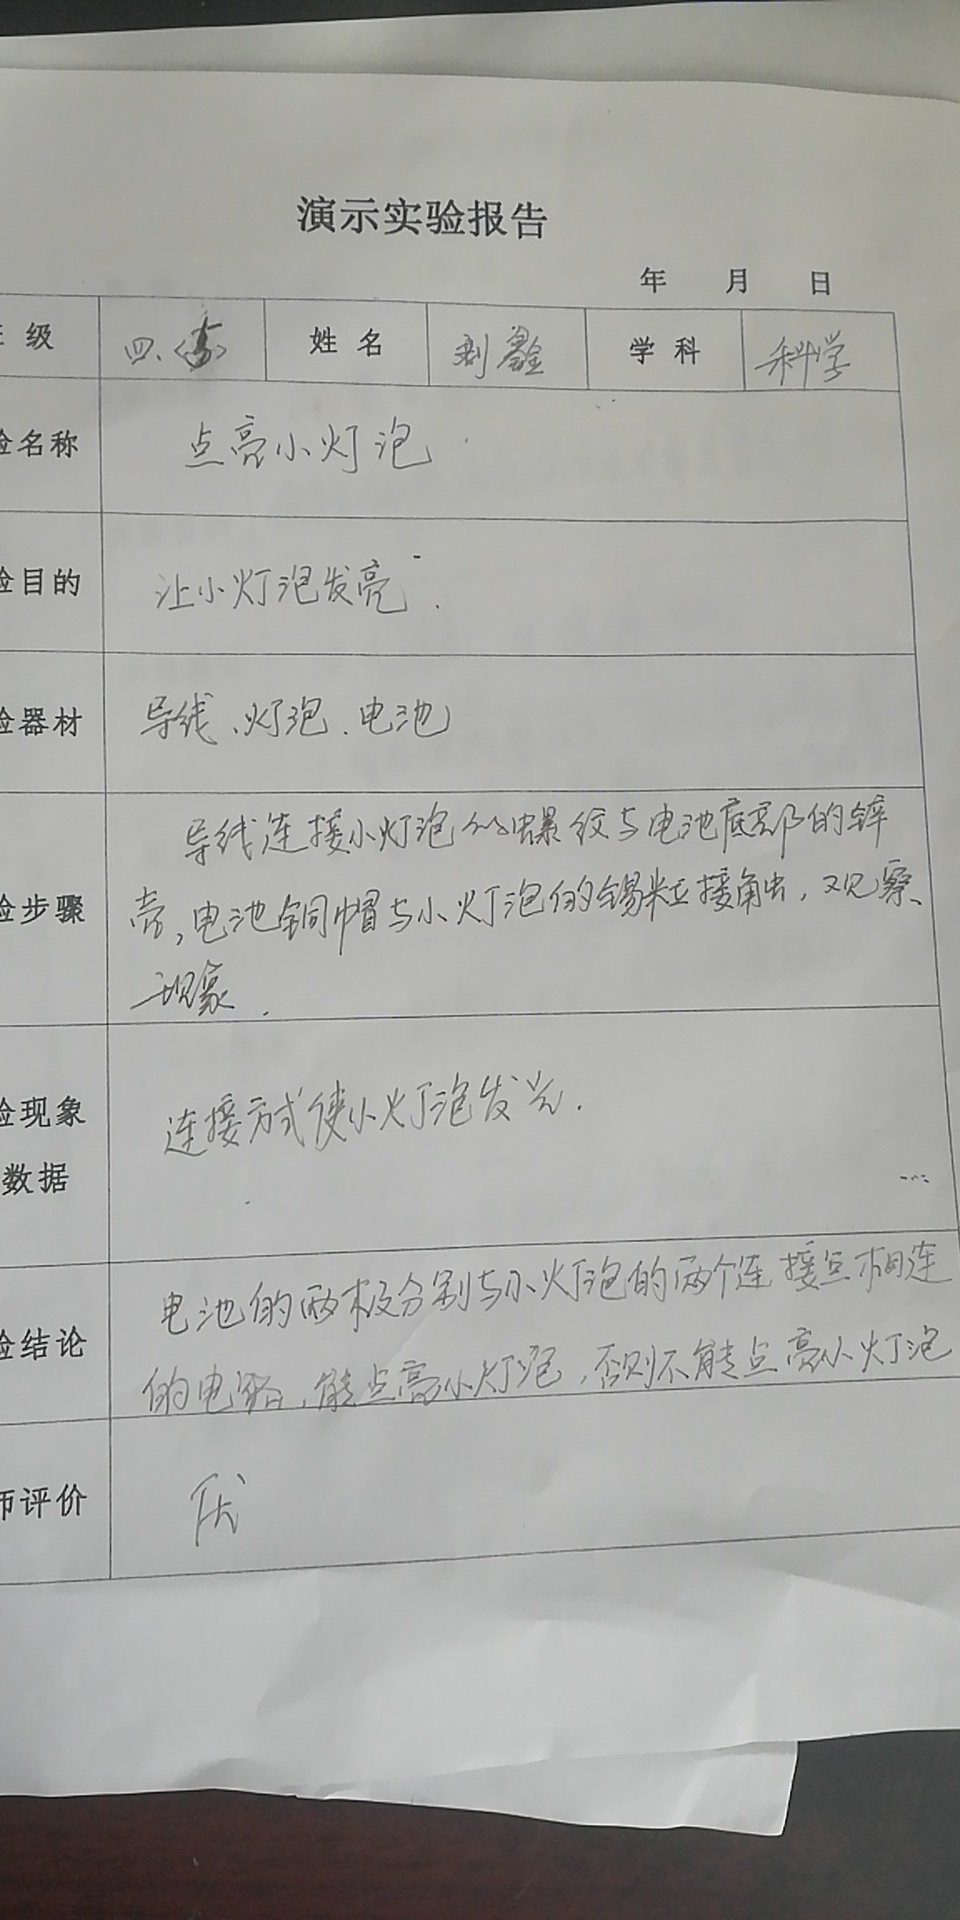 演示实验报告
年 月 日
级 四.〈五〉 姓名 刘鑫 学科 科学
验名称 点亮小灯泡
验目的 让小灯泡发亮.
验器材 导线、灯泡、电池
导线连接小灯泡的螺纹与电池底部的锌
验步骤 壳,电池铜帽与小灯泡的锡粒接触,观察
现象.
验现象 连接方式使小灯泡发光.
数据
电池的两极分别与小灯泡的两个连接点相连
验结论 的电路,能点亮小灯泡,否则不能点亮小灯泡
师评价 优